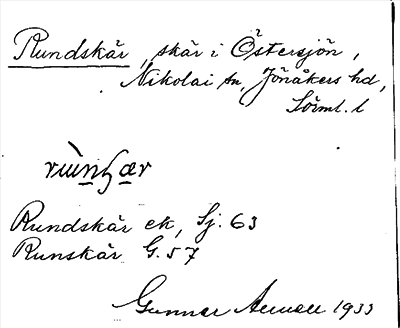 Rundskär, skär i Östersjön,
Nikolai sn, Jönåkers hd,
Sörml. l
Rundskär ek, Sj. 63
Runskär G. 57
Gunnar 1933